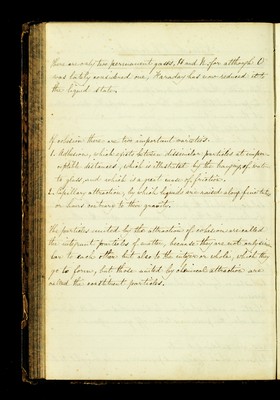 There are only two permanent gases, H and N. for although O
was lately considered one, Faraday has now reduced it to
the liquid state.
Of cohesion there are two important varieties.
1. Adhesion, which exists between dissimilar particles at imper-
ceptible distances, which is illustrated by the hanging of water
to glass, and which is a great cause of friction.
2. Capillary attraction, by which liquids are raised along fine tubes
in
to their gravity.
The particles united by the attraction of cohesion are called
the integrant particles of matter, because they are not only simi-
lar to each other but also to the integer or whole, which they
go to form, but those united by chemical attraction are
called the constituent particles.